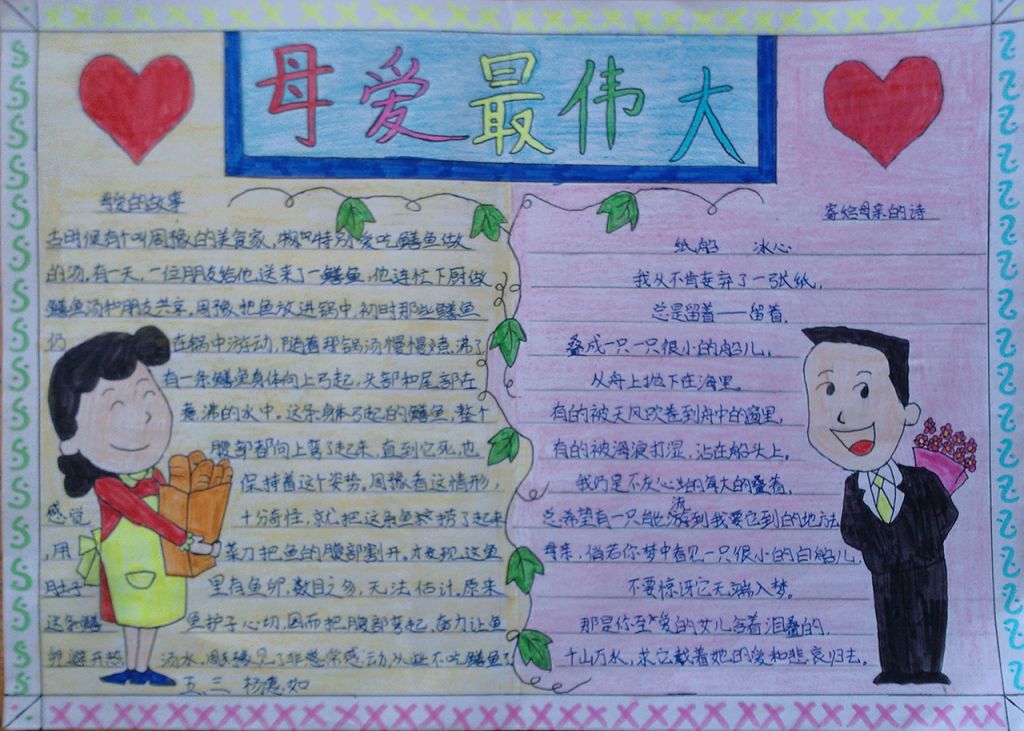 母爱最伟大
母爱的故事
古时候有个叫周豫的美食家,特别爱吃鳝鱼做
的汤,有一天,一位朋友给他送来了一鳝鱼,他连忙下厨做
鳝鱼汤和朋友共享,周豫把鱼放进锅中,初时那些鳝鱼
仍在锅中游动,随着那锅汤慢慢煮沸了
有一条鳝鱼身体向上弓起,头部和尾部在
煮沸的水中,这条身体弓起的鳝鱼,整个
腹部都向上弯了起来,直到它死,也
保持着这个姿势,周豫看这情形,
感觉十分奇怪,就把这条鱼捞了起来
,用菜刀把鱼的腹部割开,才发现,这鱼
肚子里有鱼卵,数目之多,无法估计,原来
这条鳝鱼护子心切,因而把腹部弯起,奋力让鱼
卵避开热汤水,周豫见了非常感动,从此不吃鳝鱼了
五、三 杨惠如
寄给母亲的诗
纸船 冰心
我从不肯妄弃了一张纸,
总是留着——留着,
叠成一只一只很小的船儿,
从舟上抛下在海里。
有的被天风吹卷到舟中的窗里,
有的被海浪打湿,沾在船头上。
我仍是不灰心的每天的叠着,
总希望有一只能流到我要它到的地方去
母亲,倘若你梦中看见一只很小的白船儿,
不要惊讶它无端入梦。
那是你至爱的女儿含着泪叠的,
千山万水,求它载着她的爱和悲哀归去。